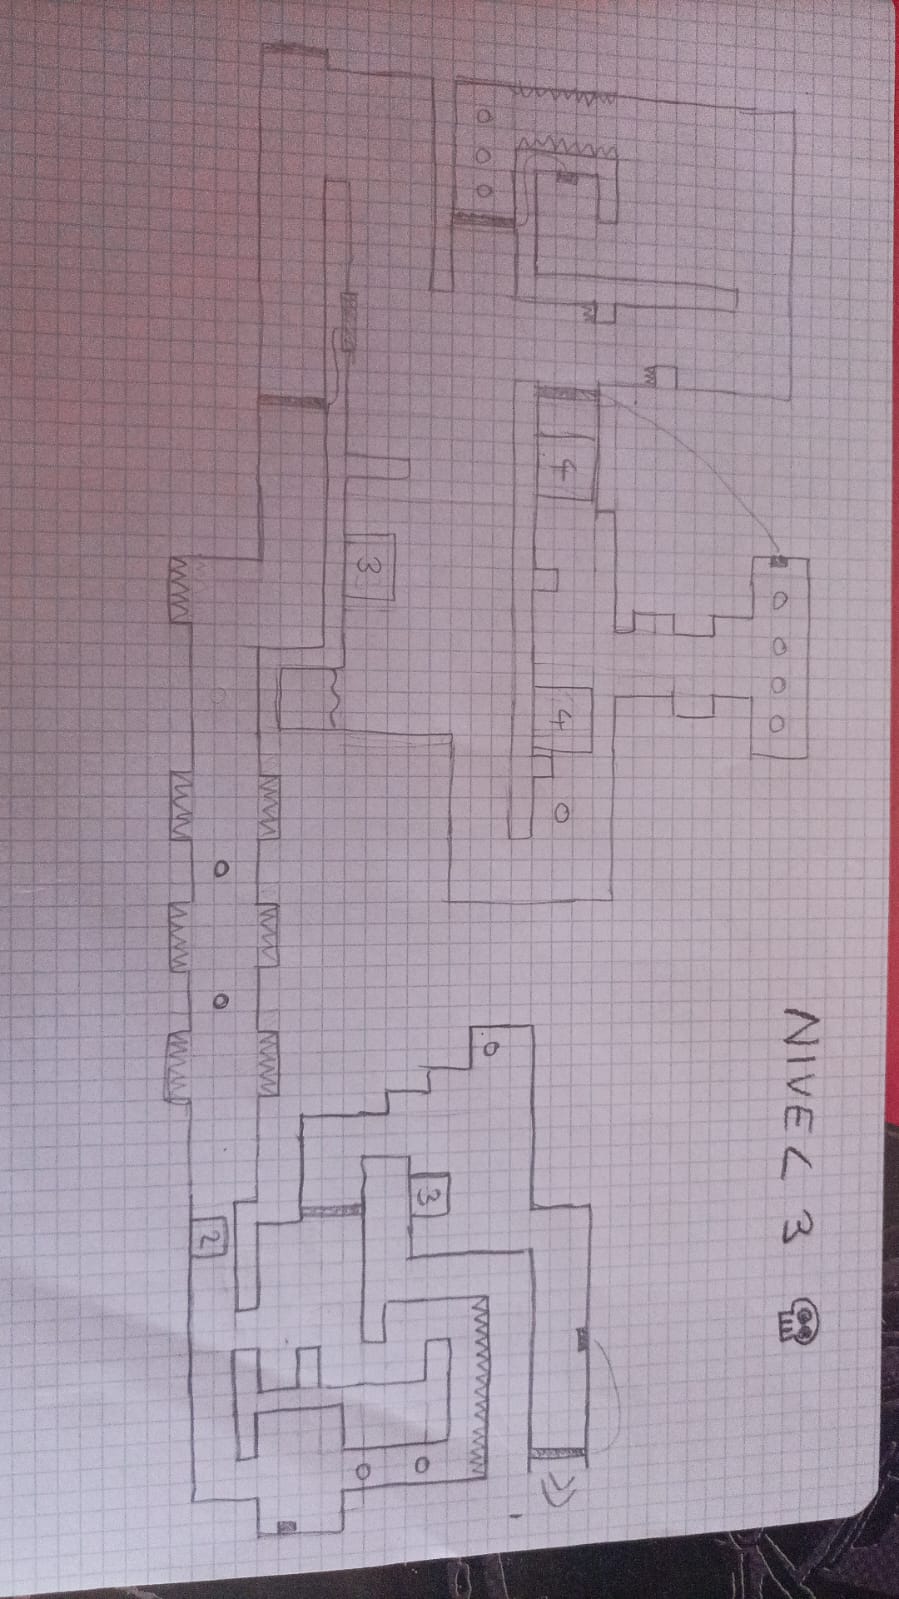 NIVEL 3
4
4
3
3
2